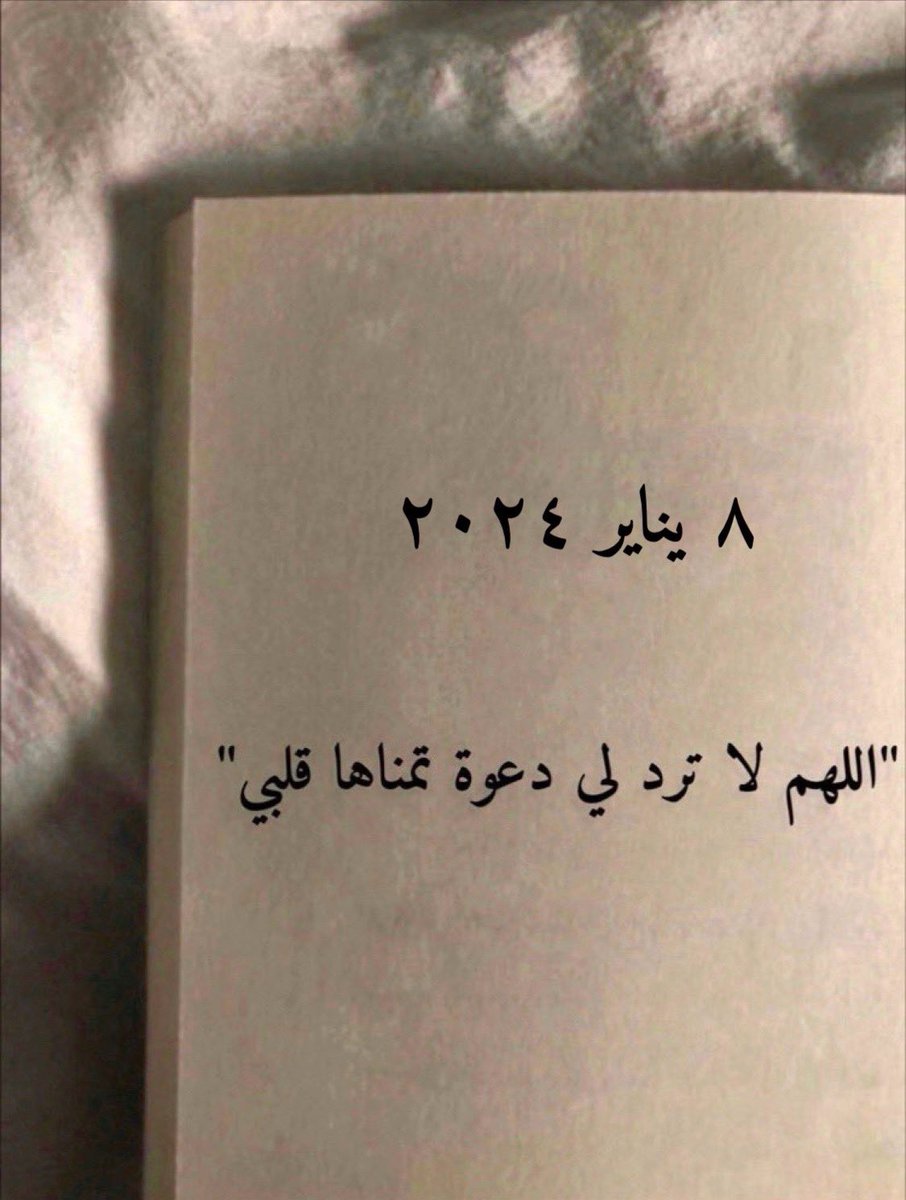 ٨ يناير ٢٠٢٤
"اللهم لا ترد لي دعوة تمناها قلبي"